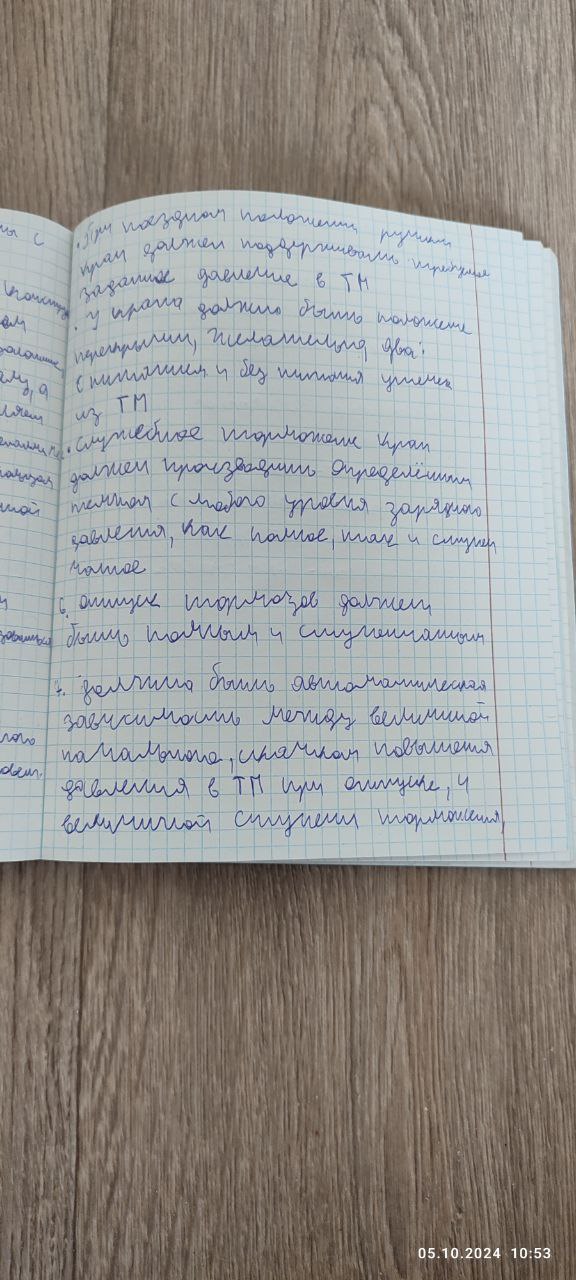 ны с
• При поездном положении ручки
кран должен поддерживать требуемое
заданное давление в ТМ
• У крана должно быть положение
перекрыши, желательно два:
с питанием и без питания утечек
из ТМ
• Служебное торможение кран
должен производить определённым
темпом с любого уровня зарядного
давления, как полное, так и ступен
чатое
6. отпуск тормозов должен
быть полным и ступенчатым
7. Должна быть автоматическая
зависимость между величиной
начального, скачком повышения
давления в ТМ при отпуске, и
величиной ступени торможения,
05.10.2024 10:53